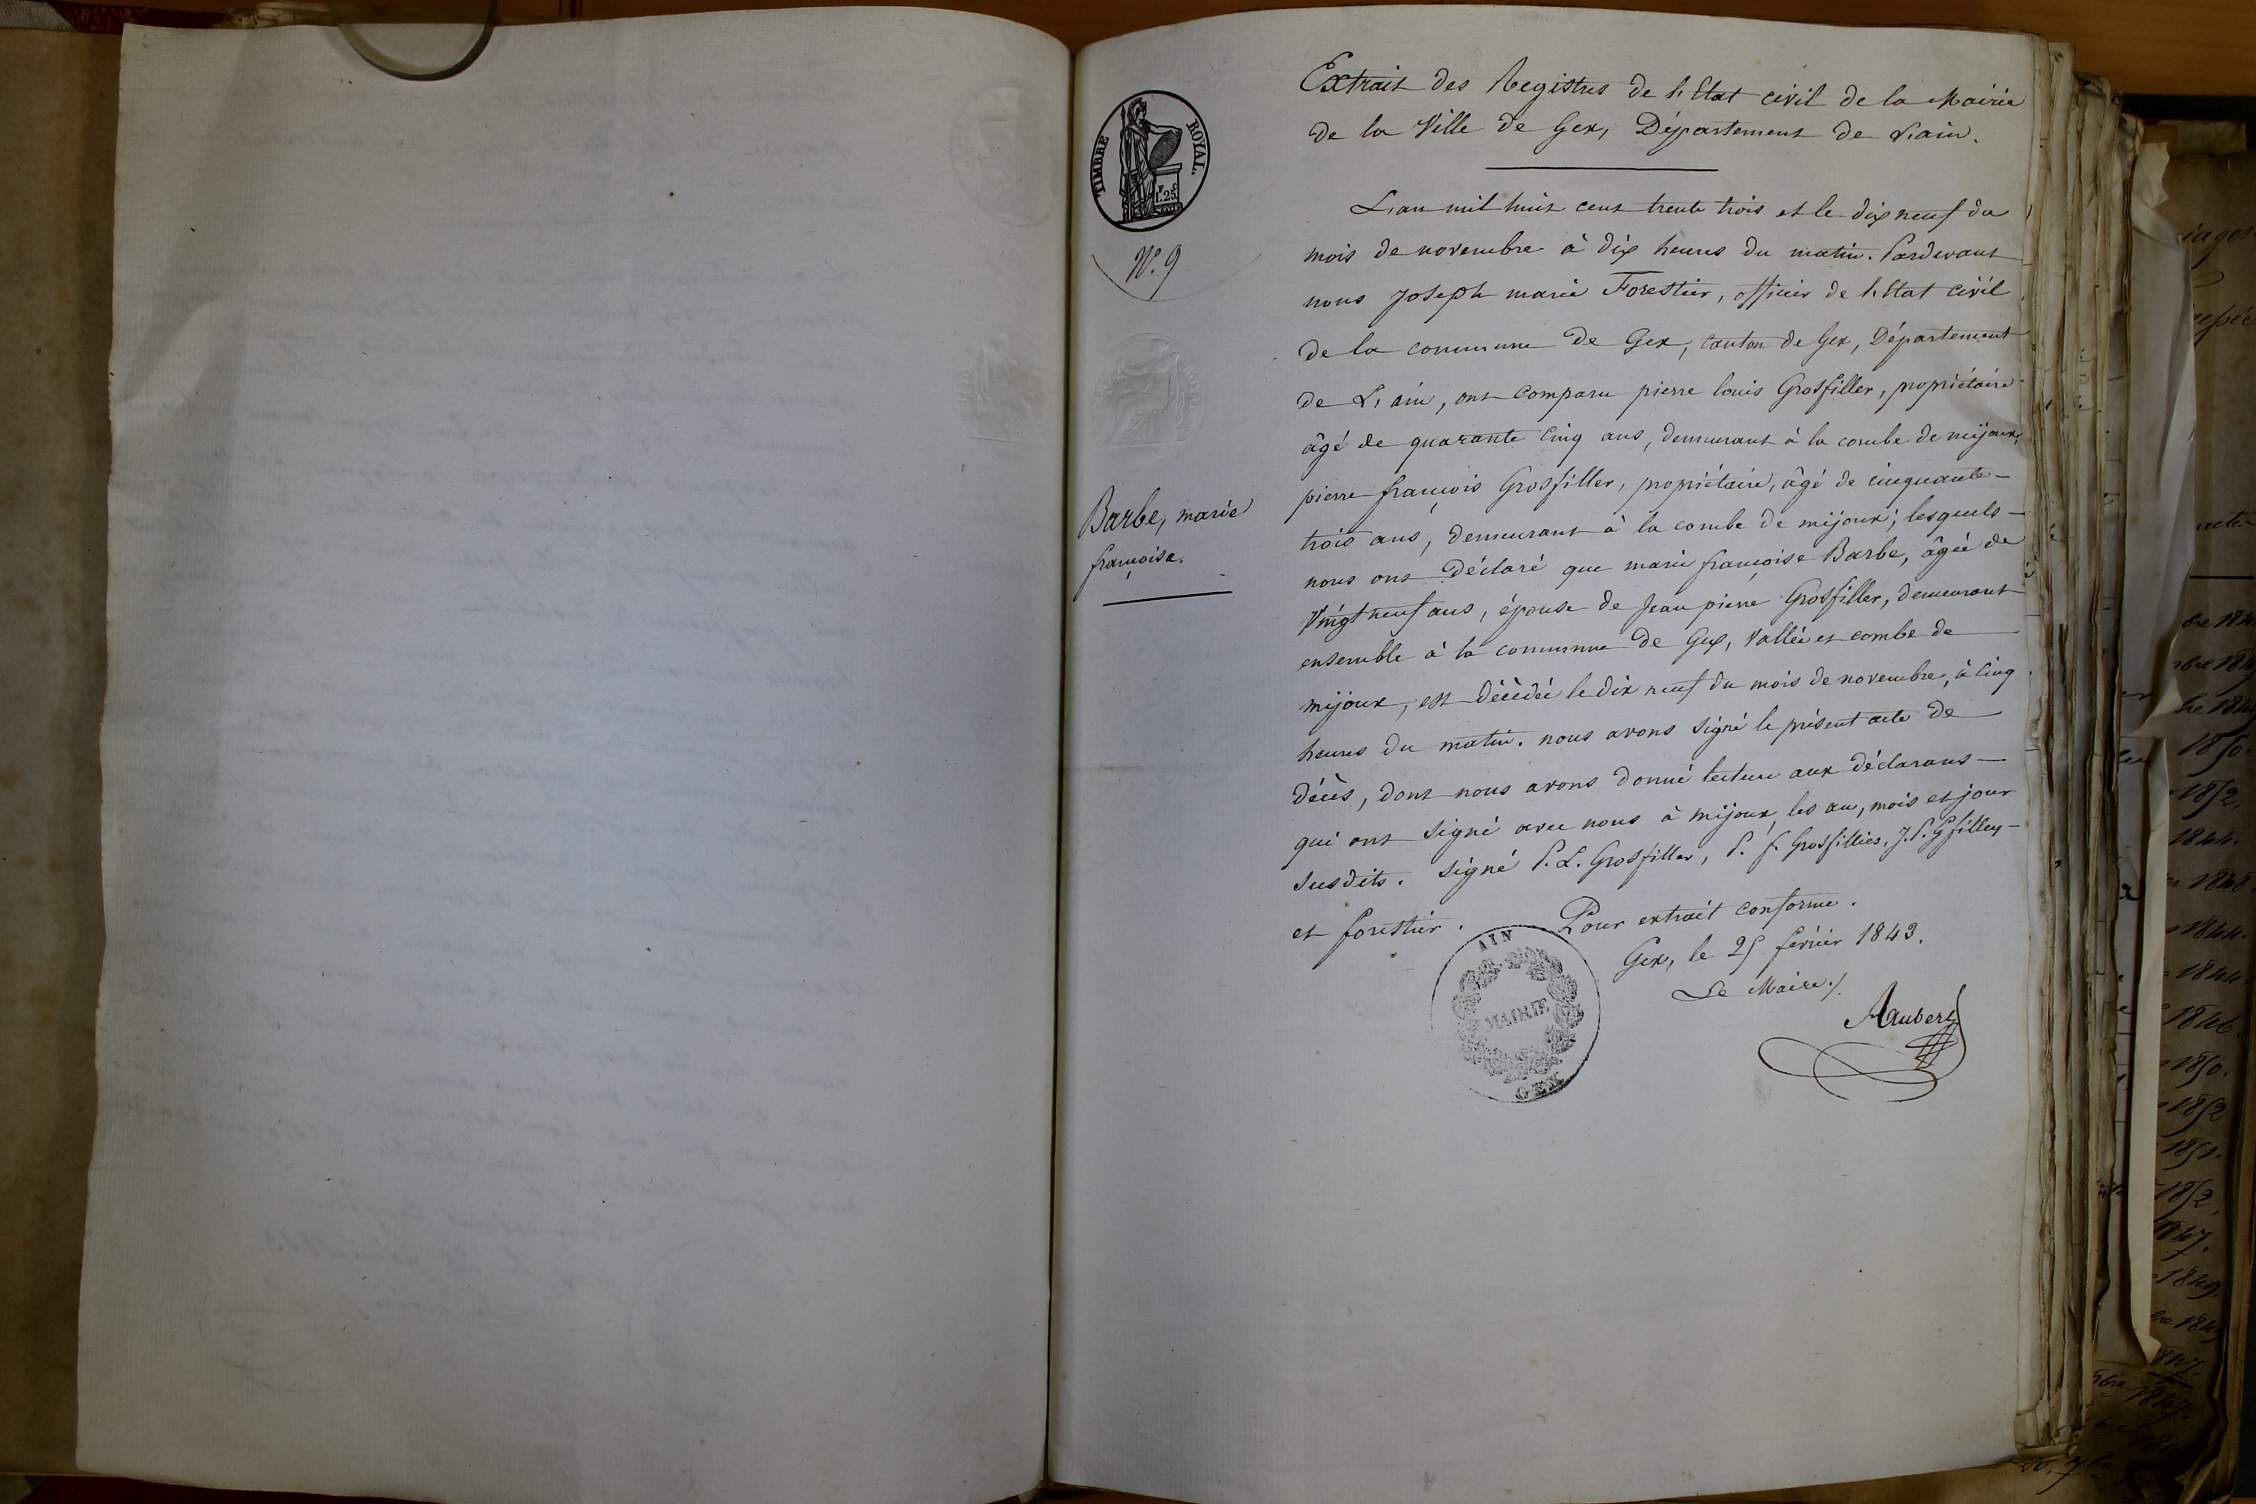 TIMBRE ROYAL.
1.F 25.C
N.º 9
Barbe, marie
françoise.
Extrait des Registres de l'Etat civil de la Mairie
de la Ville de Gex, Département de L'ain.
L'an mil huit cent trente trois et le dix neuf du
mois de novembre à dix heures du matin. Pardevant
nous Joseph marie Forestier, officier de l'Etat civil
de la commune de Gex, canton de Gex, Département
de L'ain, ont comparu pierre louis Grosfiller, propriétaire
âgé de quarante cinq ans, demeurant à la combe de mijoux,
pierre françois Grosfiller, propriétaire, âgé de cinquante-
trois ans, demeurant à la combe de mijoux; lesquels
nous ont déclaré que marie françoise Barbe, âgée de
vingt neuf ans, épouse de Jean pierre Grosfiller, demeurant
ensemble à la commune de Gex, Vallée et combe de
mijoux, est décédée le dix neuf du mois de novembre, à cinq
heures du matin. nous avons signé le présent acte de
décès, dont nous avons donné lecture aux déclarans
qui ont signé avec nous à mijoux, les an, mois et jour
susdits. signé P. L. Grosfiller, P. f. Grosfillier, J. P. Gfilley
et forestier. Pour extrait conforme.
Gex, le 25 février 1843.
Le Maire./.
Aubert
AIN
MAIRIE
GEX
1850.
1852.
1844.
1844.
1844
1846.
1850.
1852
1852.
1847.
1849.